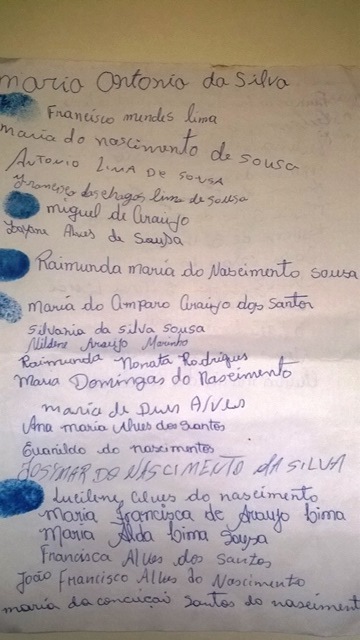 maria Antonia da Silva
Francisco mendes lima
maria do nascimento de sousa
ANTONIO LIMA DE SOUSA
Francisco das chagas lima de sousa
miguel de Araujo
Alves de Sousa
Raimunda maria do Nascimento sousa
maria do Amparo Araujo dos Santos
Silvania da silva Sousa
Mildene Araujo Marinho
Raimunda Nonata Rodrigues
Maria Domingas do Nascimento
maria de Alves
Ana maria Alves dos Santos
Evanildo do nascimentos
JOSIMAR DO NASCIMENTO DA SILVA
Lucilene Alves do nascimento
Maria Francisca de Araujo Lima
Maria Alda Lima Sousa
Francisca Alves dos Santos
João Francisco Alves do Nascimento
maria da conceição Santos do nasciment